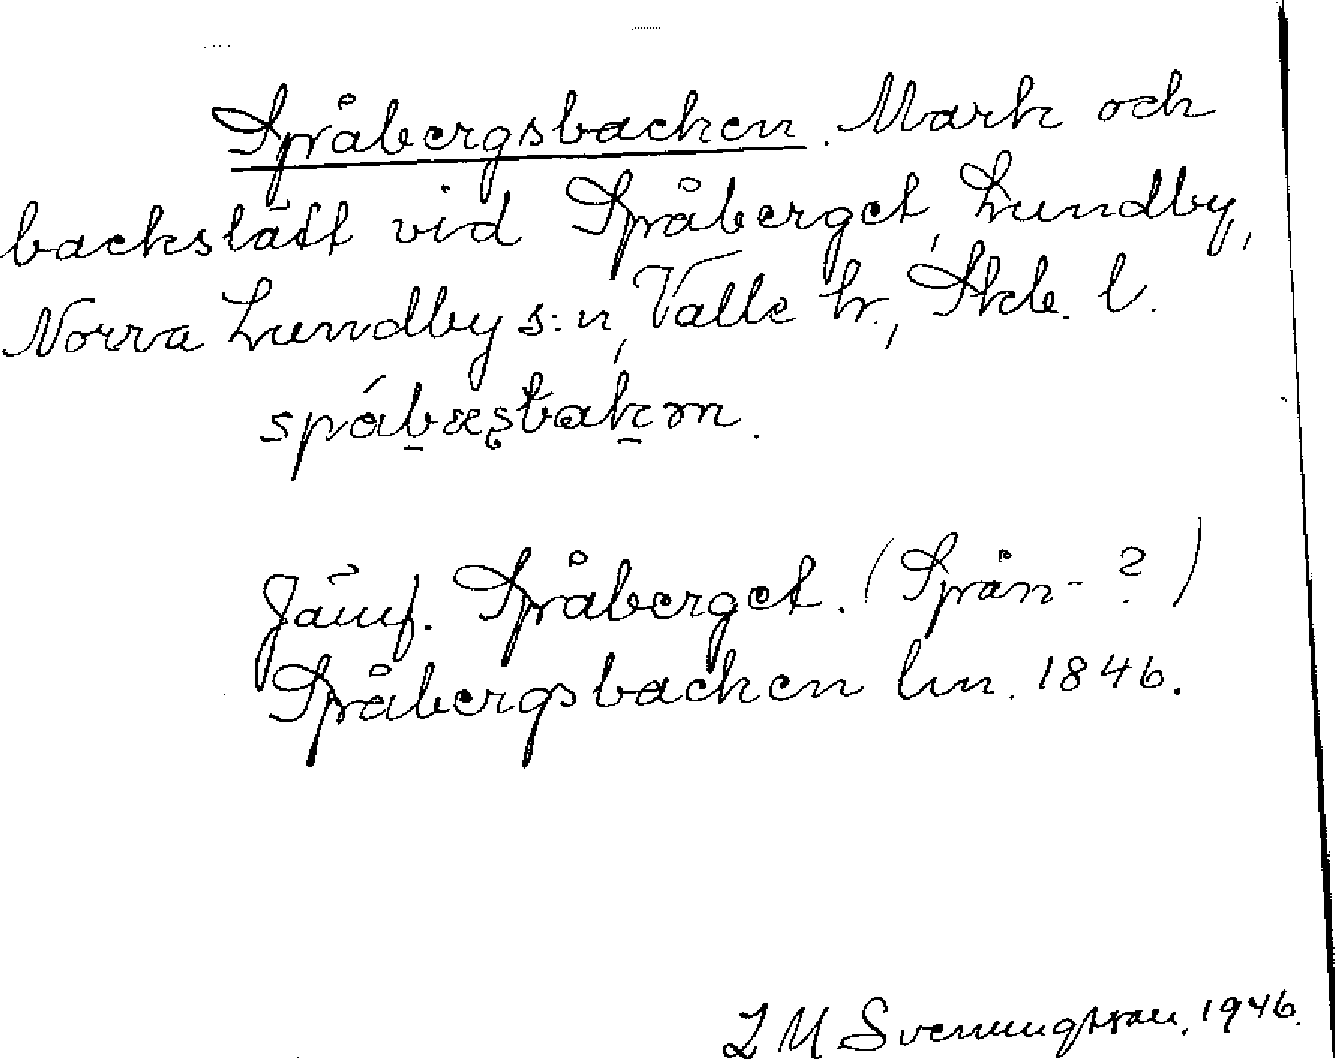 Spåbergsbacken. Mark och
backslätt vid Spåberget, Lundby,
Norra Lundby s:n, Valle hr., Skbs. l.
Jämf. Spåberget. (Spån- ?)
Spåbergsbacken lm. 1846.
I M Svenungsson, 1946.